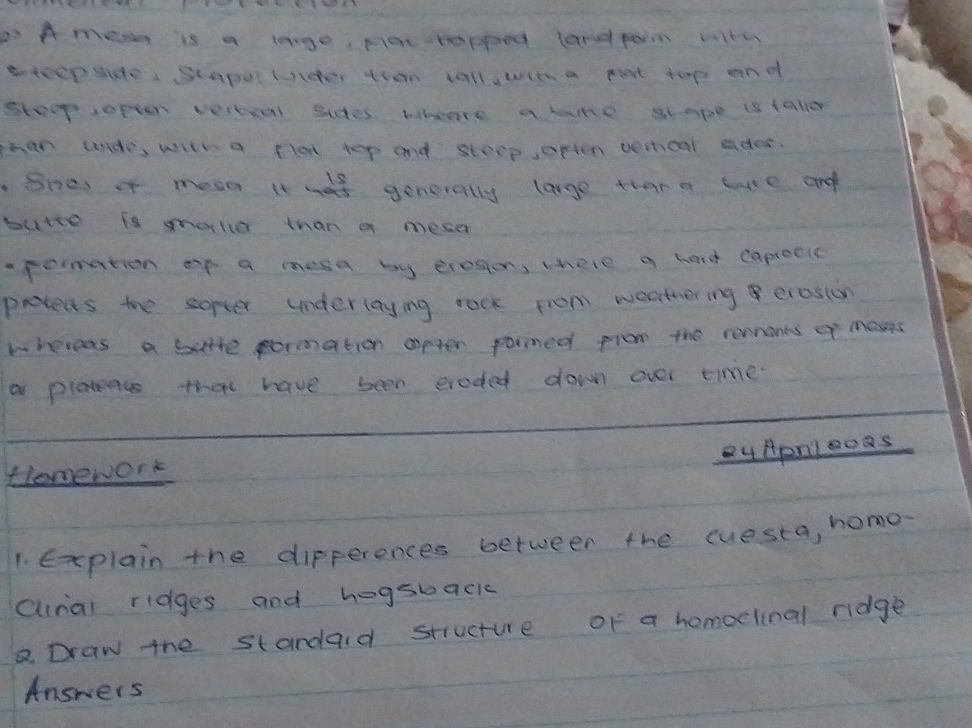 A mesa is a large, flat-topped landform with
steep side, Scape: Wider than tall, with a flat top and
steep, often vertical sides wheare a butte scape is taller
than wide, with a flat top and steep, often vertical sides.
• Sizes of mesa it is generally large than a butte and
butte is smaller than a mesa
• formation of a mesa by erosion, where a hard caprock
protects the softer underlaying rock from weathering & erosion
whereas a butte formation often formed from the remnants of mesas
or plateaus that have been eroded down over time.
24 April 2025
Homework
1. Explain the differences between the cuesta, homo-
clinal ridges and hogsback
2. Draw the standard structure of a homoclinal ridge
Answers